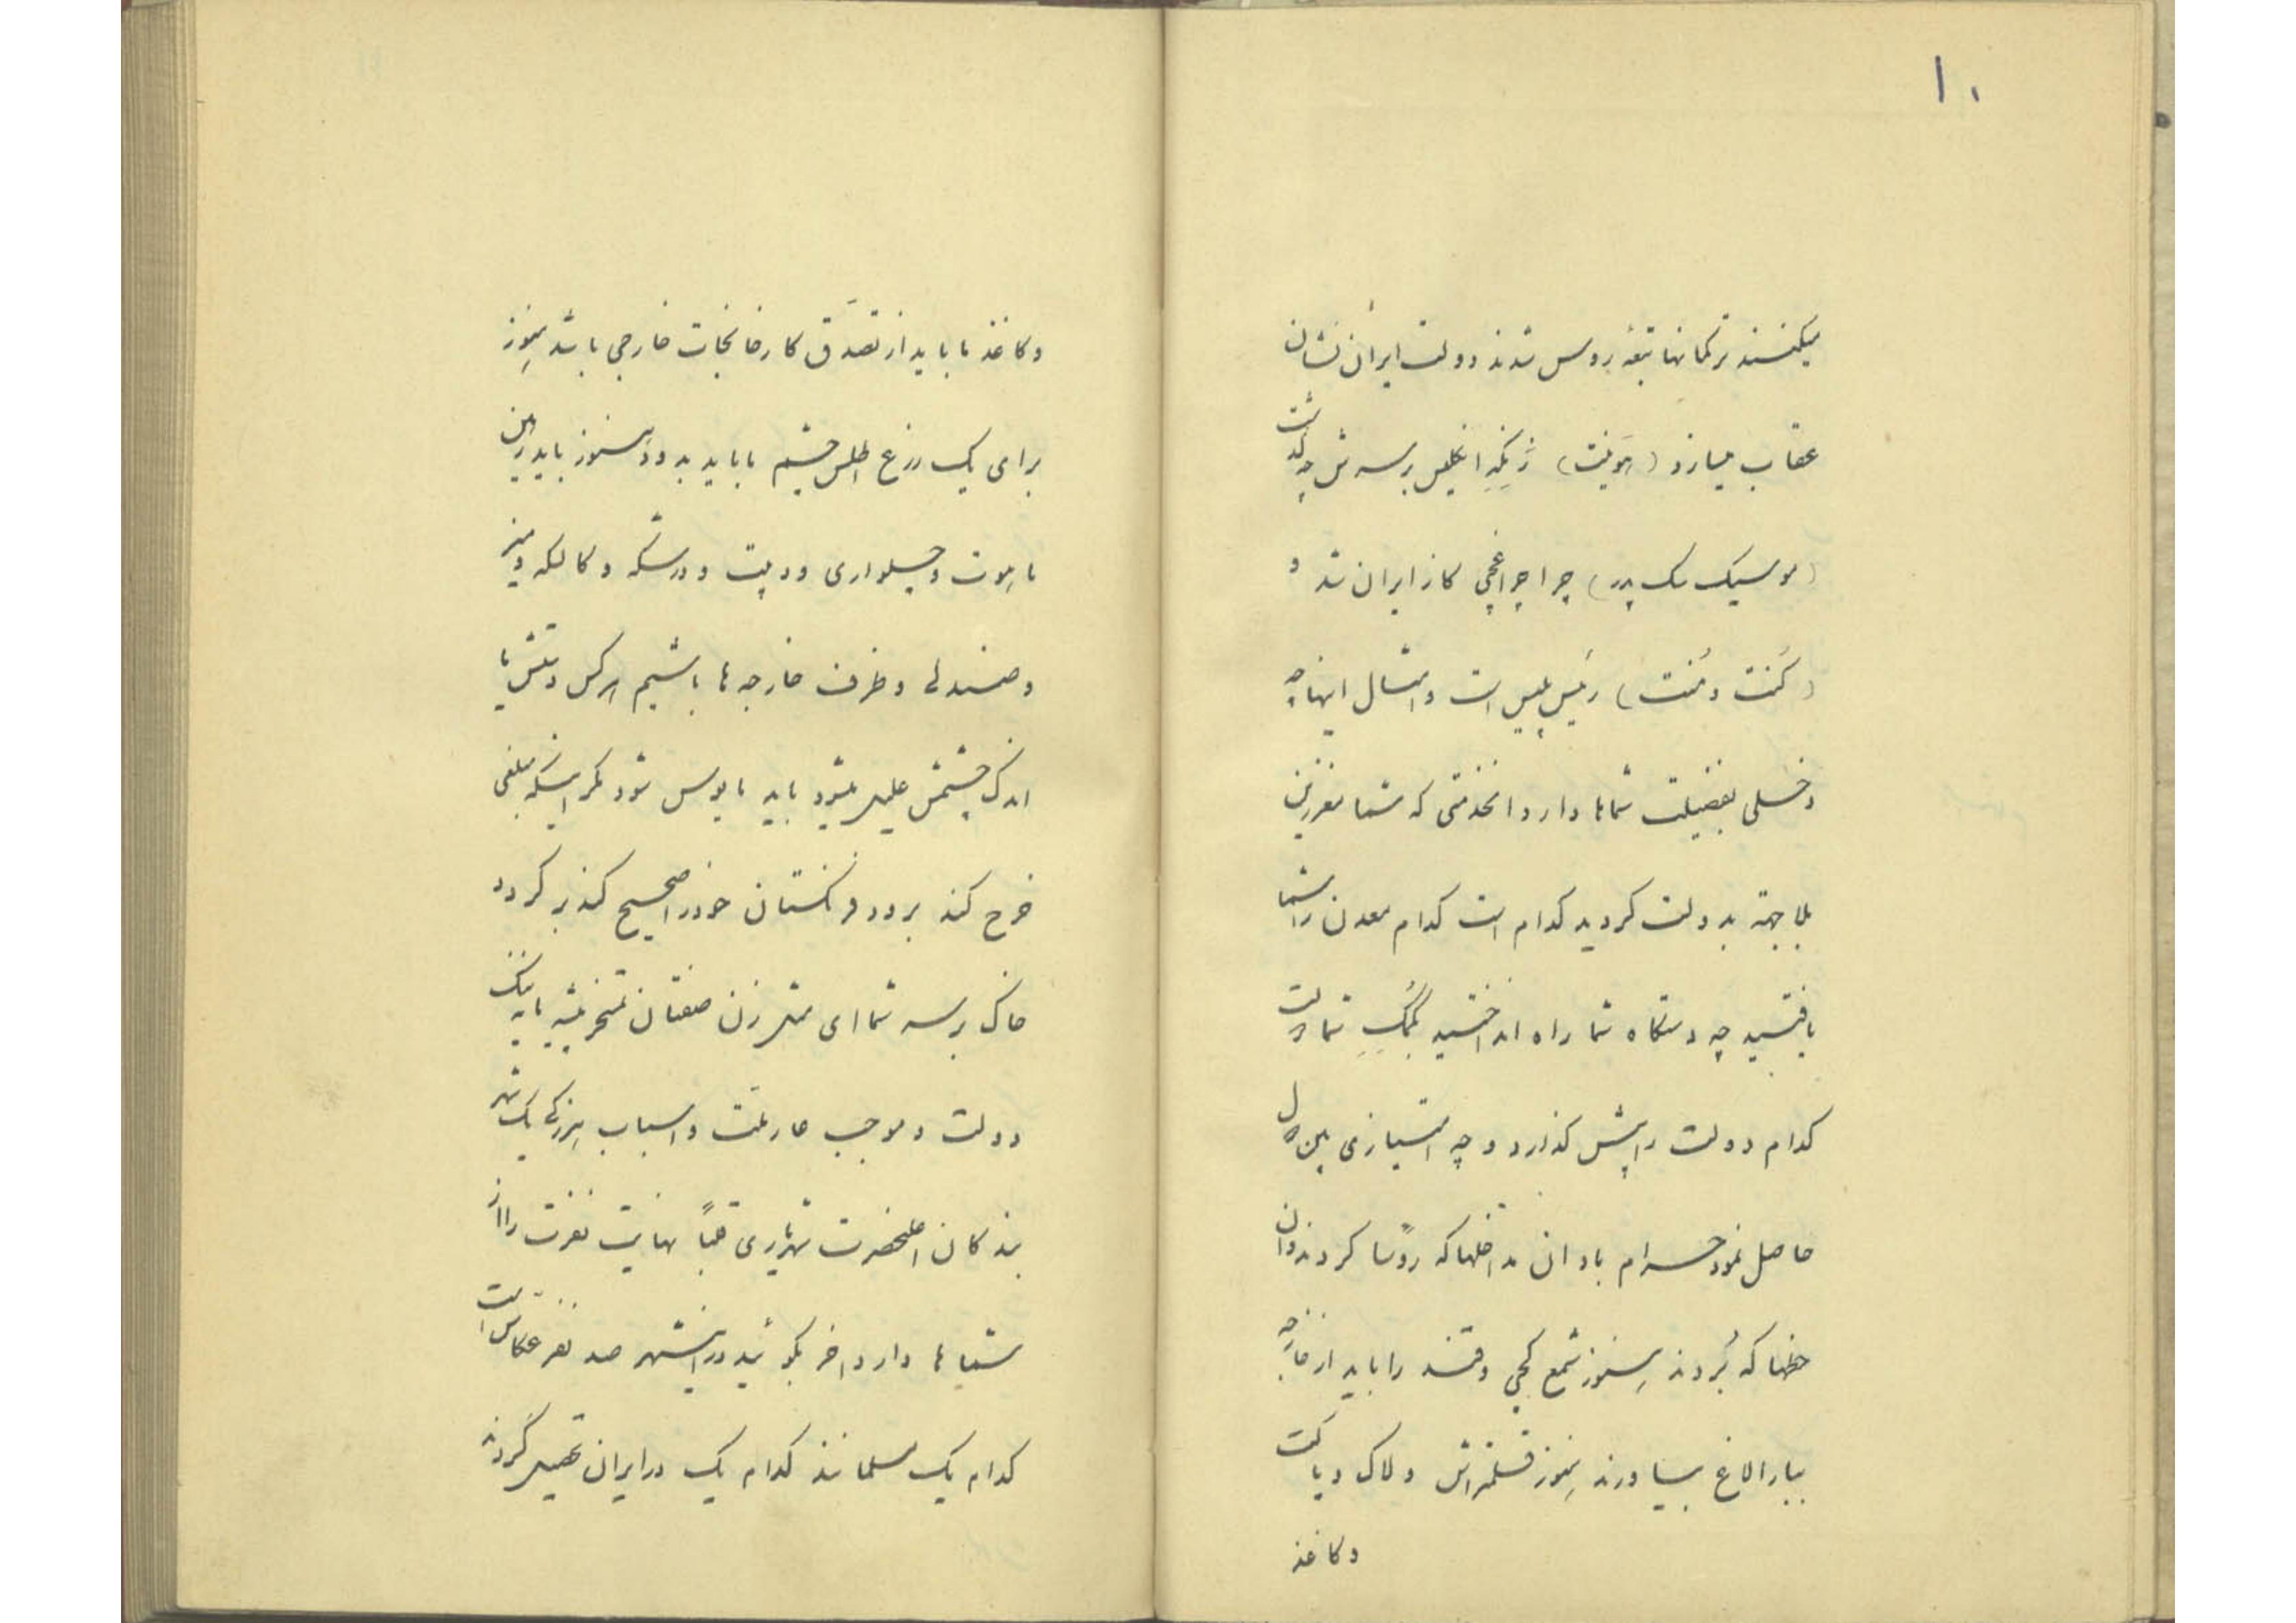 ۱۰
میکنند ترکمانها تبعهٔ روس شدند دولت ایران نشان
عقاب میسازد (هونیت) زنکهٔ انگلیس بر سرش چه گذشت
(موسیک سک پدر) چرا چراغچی کاز ایران شد و
(کنت دمنت) رئیس پلیس است و امثال اینها چه
دخلی بفضیلت شماها دارد انخدمتی که شما مغرزین
بلاجهة بدولت کردید کدام است کدام معدن را شما
یافتید چه دستکاه شما راه انداختید بکمک شما دولت
کدام دولت را پیش کذارد و چه امتیازی بین دول
حاصل نمود حرام باد ان مداخلها که روسا کردند و ان
حظها که بردند هنوز شمع کچی و قند را باید از خارجه
ببار الاغ بیاورند هنوز قلمتراش و لاک و پاکت
و کاغذ
و کاغذ ما باید از تصدق کارخانجات خارجی باشد هنوز
برای یک ذرع اطلس چشم ما باید بدود هنوز باید رهن
ماهوت و چلواری و دبیت و درشکه و کالسکه و میز
و صندلی و ظرف خارجه ها باشیم هرکس دستش یا
اندک چشمش علیل بشود باید مایوس شود مکر اینکه مبلغی
خرج کند برود فرنکستان خود را صحیح کند برکردد
خاک بر سر شما ای مشتی زن صفتان تمسخر پیشه مایه ننک
دولت و موجب عار ملت و اسباب هرزکی یک شهر
بندکان اعلیحضرت شهریاری قلباً نهایت نفرت را از
شماها دارد اخر بکوئید در این شهر صد نفر عکاس است
کدام یک مسلمانند کدام یک در ایران تحصیل کردند